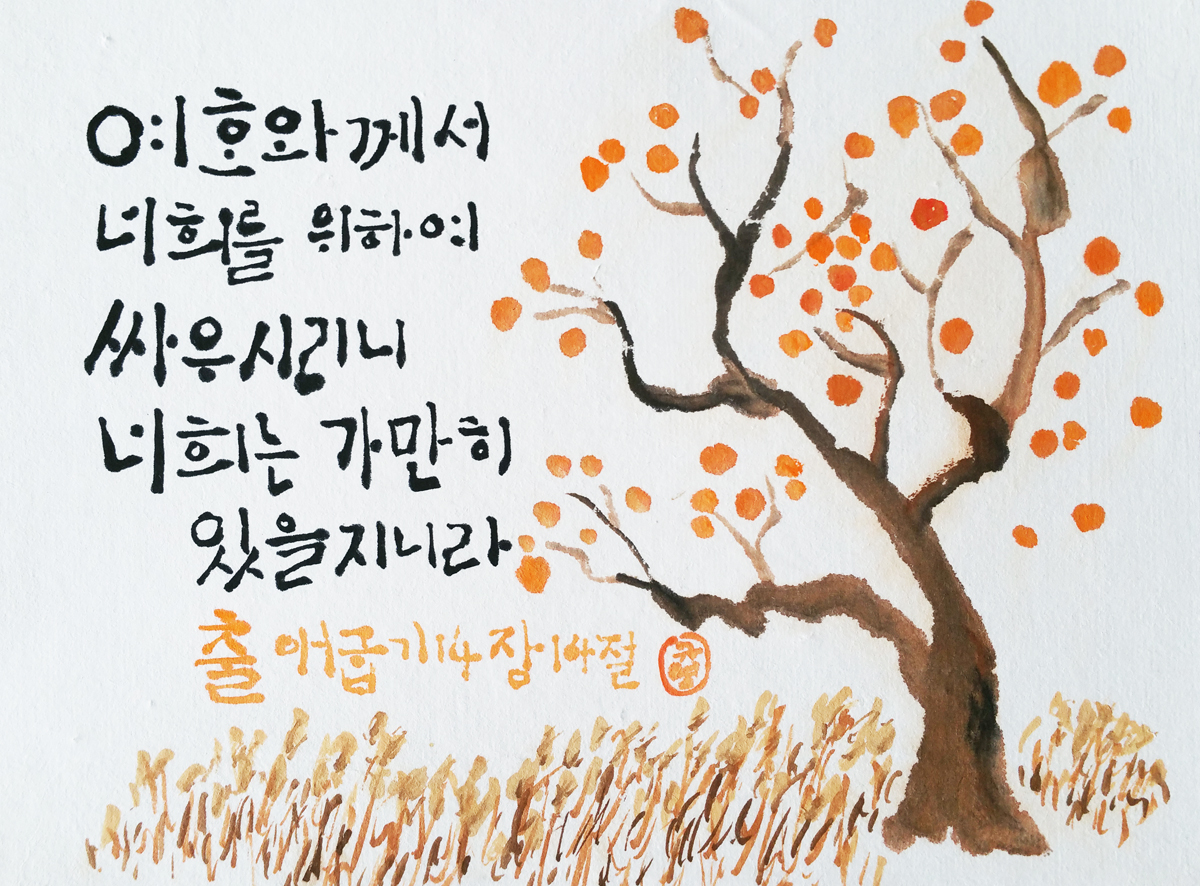 여호와께서
너희를 위하여
싸우시리니
너희는 가만히
있을지니라
출애굽기14장14절